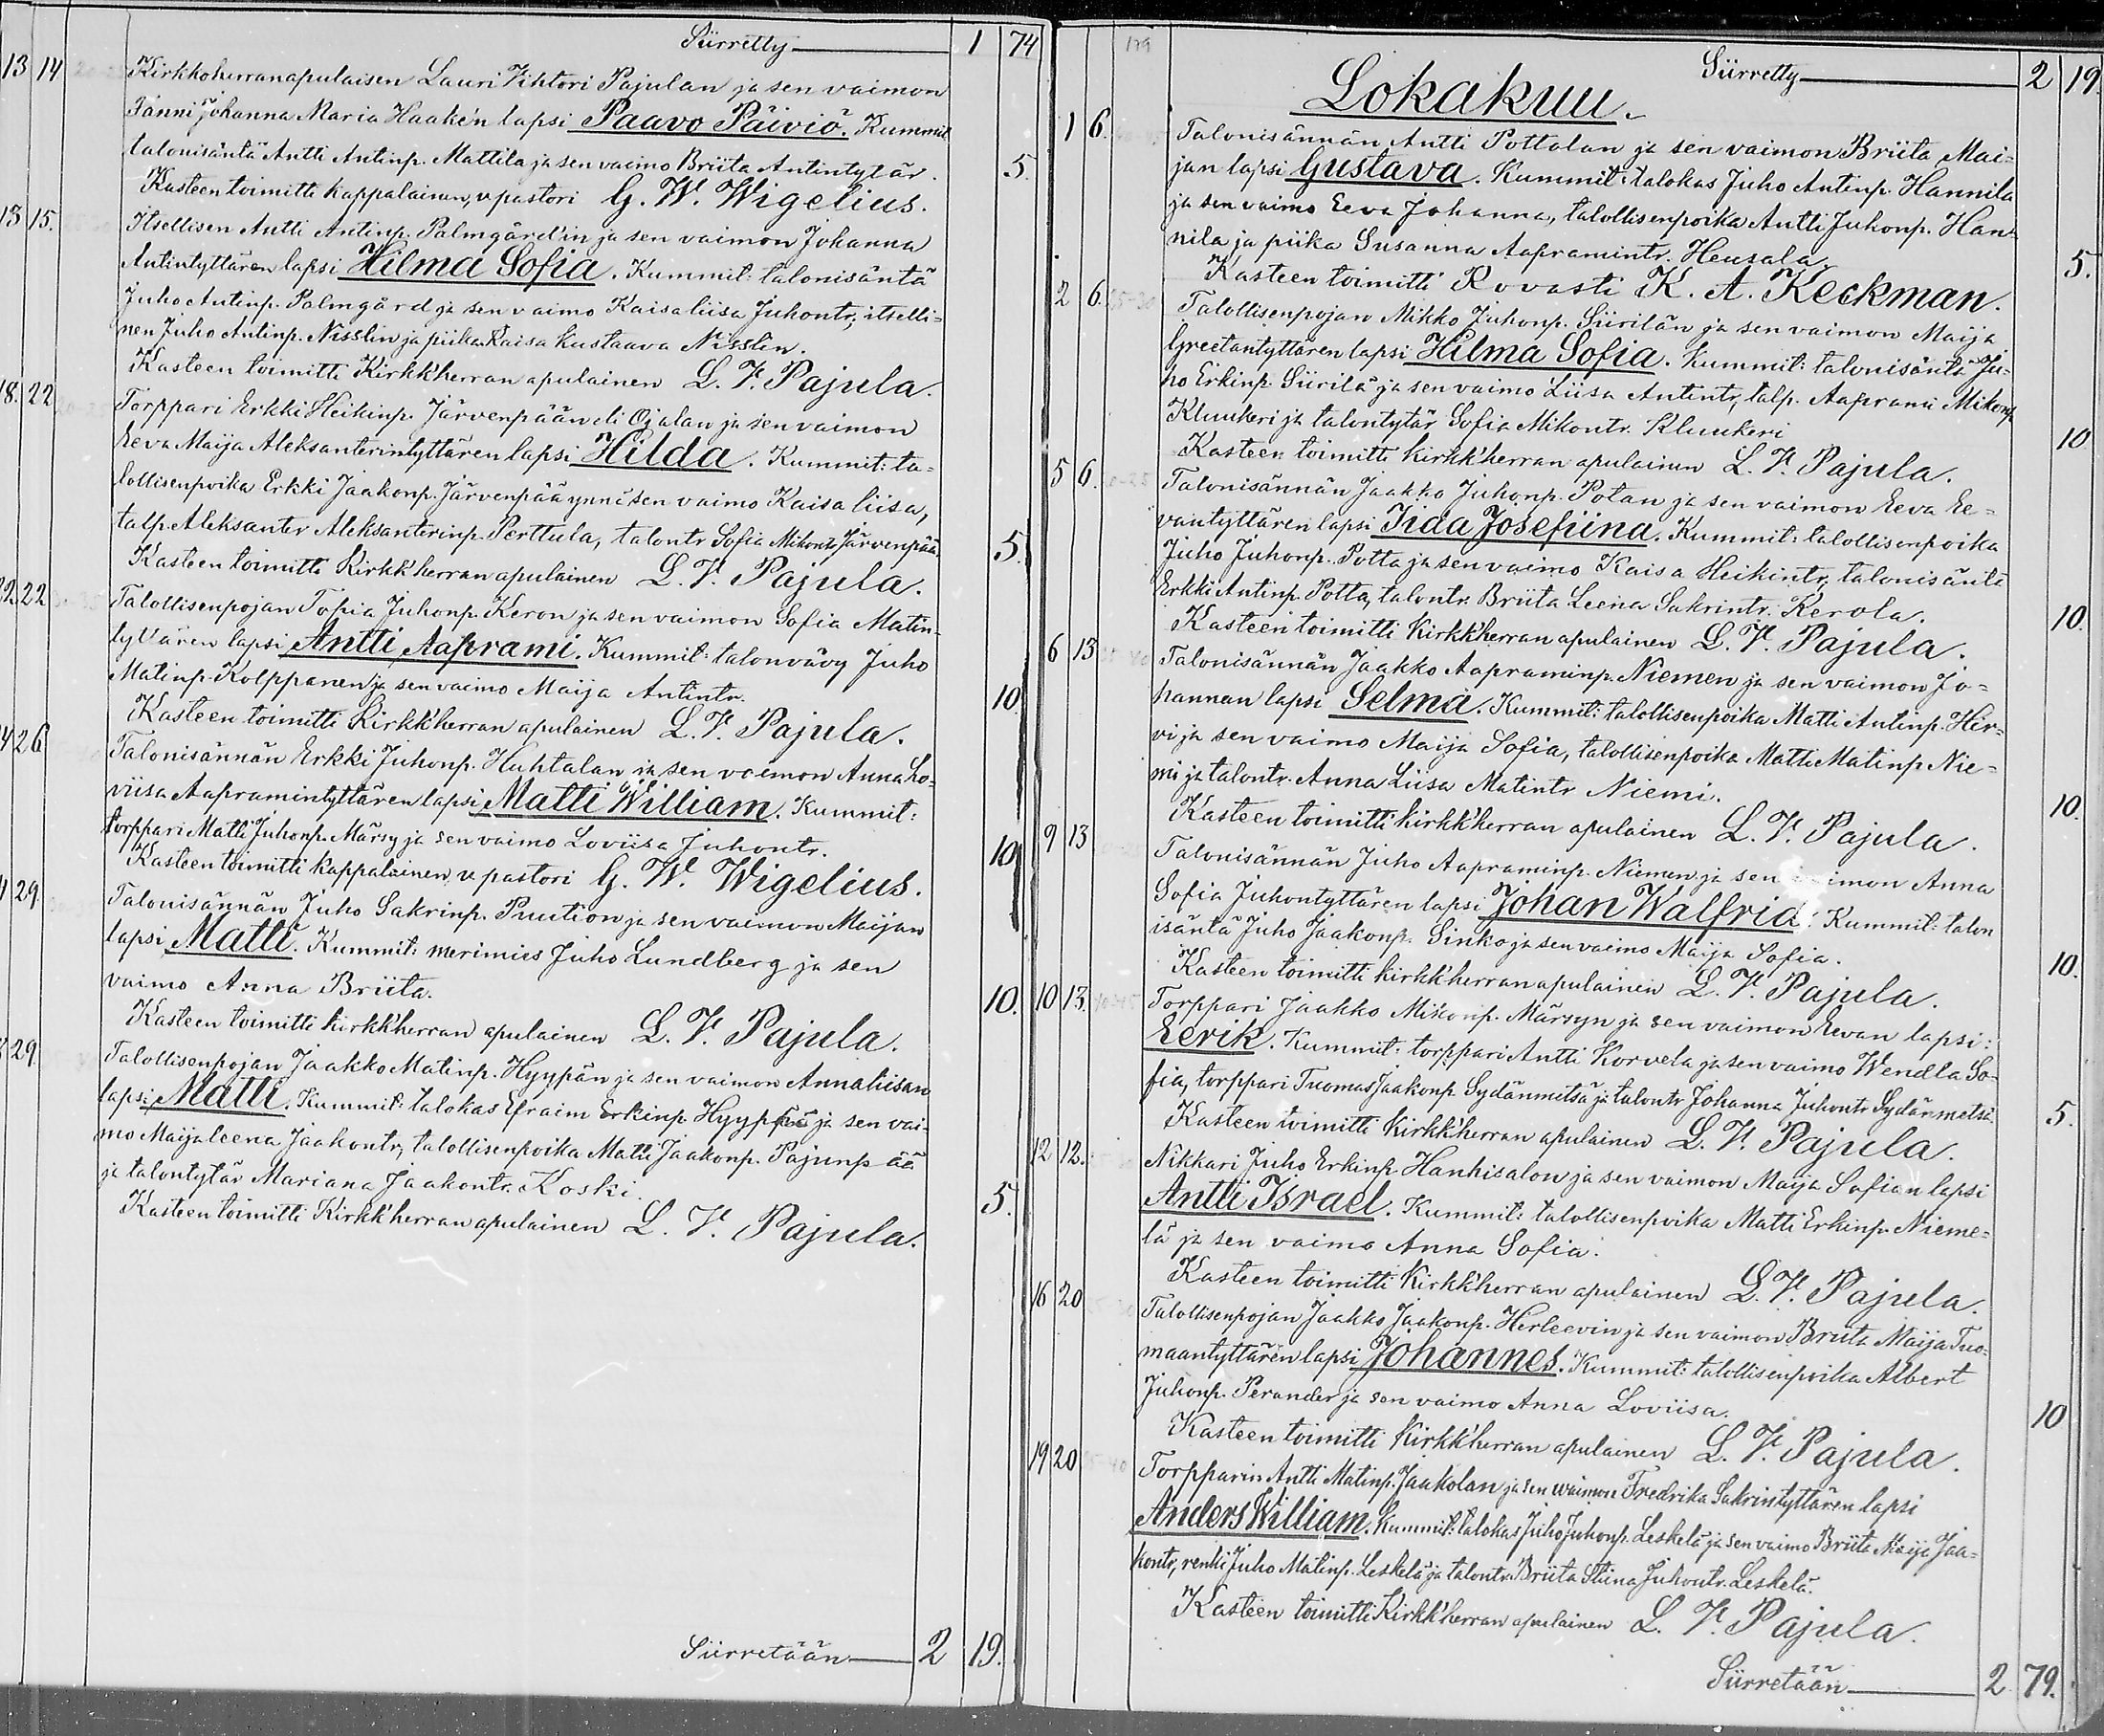 Siirretty 1 74
13 14 Kirkkoherranapulaisen Lauri Vihtori Pajulan ja sen vaimon
Fanni Johanna Maria Haake'n lapsi Paavo Päiviö. Kummit
talonisäntä Antti Antinp. Mattila ja sen vaimo Briita Antintytär. 5.
Kasteen toimitti kappalainen, v. pastori G. W. Wigelius.
13 15. Itsellisen Antti Antinp. Palmgård'in ja sen vaimon Johanna
Antintyttären lapsi Hilma Sofia. Kummit: talonisäntä
Juho Antinp. Palmgård ja sen vaimo Kaisaliisa Juhontr, itselli=
nen Juho Antinp. Nisslin ja piika Kaisa Kustaava Nisslin.
Kasteen toimitti Kirkk'herran apulainen L. V. Pajula.
18. 22 Torppari Erkki Heikinp. Järvenpään eli Ojalan ja sen vaimon
Eeva Maija Aleksanterintyttären lapsi Hilda. Kummit: ta=
lollisenpoika Erkki Jaakonp. Järvenpää ynnä sen vaimo Kaisa liisa,
talp. Aleksanter Aleksanterinp. Perttula, talontr Sofia Mikontr Järvenpää. 5.
Kasteen toimitti Kirkk'herran apulainen L. V. Pajula.
22 22 Talollisenpojan Topia Juhonp. Keron ja sen vaimon Sofia Matin-
tyttären lapsi Antti Aaprami. Kummit: talonvävy Juho
Matinp. Kolpponen ja sen vaimo Maija Antintr. 10
Kasteen toimitti Kirkk'herran apulainen L. V. Pajula.
26 Talonisännän Erkki Juhonp. Huhtalan ja sen vaimon Anna Lo=
viisa Aapramintyttären lapsi Matti William. Kummit:
torppari Matti Juhonp. Märsy ja sen vaimo Loviisa Juhontr. 10
Kasteen toimitti kappalainen, v. pastori G. W. Wigelius.
29. Talonisännän Juho Sakrinp. Puution ja sen vaimon Maijan
lapsi Matti. Kummit: merimies Juho Lundberg ja sen
vaimo Anna Briita. 10.
Kasteen toimitti kirkk'herran apulainen L. V. Pajula.
29. Talollisenpojan Jaakko Matinp. Hyypän ja sen vaimon Annaliisan
lapsi Matti. Kummit: talokas Efraim Erkinp. Hyyppä ja sen vai-
mo Maijaleena Jaakontr, talollisenpoika Matti Jaakonp. Pajunpää
ja talontytär Mariana Jaakontr. Koski. 5.
Kasteen toimitti Kirkk'herran apulainen L. V. Pajula.
Siirretään 2 19.
179
Siirretty 2 19.
Lokakuu.
1 6. Talonisännän Antti Pottalan ja sen vaimon Briita Mai=
jan lapsi Gustava. Kummit: talokas Juho Antinp. Hannila
ja sen vaimo Eeva Johanna, talollisenpoika Antti Juhonp. Han-
nila ja piika Susanna Aapramintr. Heusala. 5.
Kasteen toimitti Rovasti K. A. Keckman.
2 6. 25-30 Talollisenpojan Mikko Juhonp. Siirilän ja sen vaimon Maija
Greetantyttären lapsi Hilma Sofia. Kummit: talonisäntä Ju-
ho Erkinp. Siirilä ja sen vaimo Liisa Antintr, talp. Aaprami Mikonp.
Kluukeri ja talontytär Sofia Mikontr. Kluukeri 10
Kasteen toimitti kirkk'herran apulainen L. V. Pajula.
5 6. Talonisännän Jaakko Juhonp. Potan ja sen vaimon Eeva Ee=
vantyttären lapsi Iida Josefiina. Kummit: talollisenpoika
Juho Juhonp. Potta ja sen vaimo Kaisa Heikintr, talonisäntä
Erkki Antinp. Potta, talontr. Briita Leena Sakrintr. Kerola. 10.
Kasteen toimitti Kirkk'herran apulainen L. V. Pajula.
6 13 Talonisännän Jaakko Aapraminp. Niemen ja sen vaimon Jo=
hannan lapsi Selma. Kummit: talollisenpoika Matti Antinp. Hir=
vi ja sen vaimo Maija Sofia, talollisenpoika Matti Matinp. Nie=
mi ja talontr. Anna Liisa Matintr Niemi. 10.
Kasteen toimitti kirkk'herran apulainen L. V. Pajula.
9 13 Talonisännän Juho Aapraminp. Niemen ja sen vaimon Anna
Sofia Juhontyttären lapsi Johan Walfrid. Kummit: talon
isäntä Juho Jaakonp. Sinko ja sen vaimo Maija Sofia. 10.
Kasteen toimitti kirkk'herran apulainen L. V. Pajula.
10 13. Torppari Jaakko Mikonp. Märsyn ja sen vaimon Eevan lapsi:
Eerik. Kummit: torppari Antti Korvela ja sen vaimo Wendla So-
fia, torppari Tuomas Jaakonp. Sydänmetsä ja talontr Johanna Juhontr Sydänmetsä. 5.
Kasteen toimitti Kirkk'herran apulainen L. V. Pajula.
12 12. Nikkari Juho Erkinp. Hanhisalon ja sen vaimon Maija Sofian lapsi
Antti Israel. Kummit: talollisenpoika Matti Erkinp. Nieme=
lä ja sen vaimo Anna Sofia.
Kasteen toimitti Kirkk'herran apulainen L. V. Pajula.
16 20 Talollisenpojan Jaakko Jaakonp. Herleevin ja sen vaimon Briita Maija Tuo=
maantyttären lapsi Johannes. Kummit: talollisenpoika Albert
Juhonp. Perander ja sen vaimo Anna Loviisa. 10
Kasteen toimitti Kirkk'herran apulainen L. V. Pajula.
19 20 Torpparin Antti Matinp. Jaakolan ja sen waimon Fredrika Sakrintyttären lapsi
Anders William. Kummit: talokas Juho Juhonp. Leskelä ja sen vaimo Briita Maija Jaa=
kontr, renki Juho Matinp. Leskelä ja talontr. Briita Stiina Juhontr. Leskelä.
Kasteen toimitti Kirkk'herran apulainen L. V. Pajula.
Siirretään 2 79.